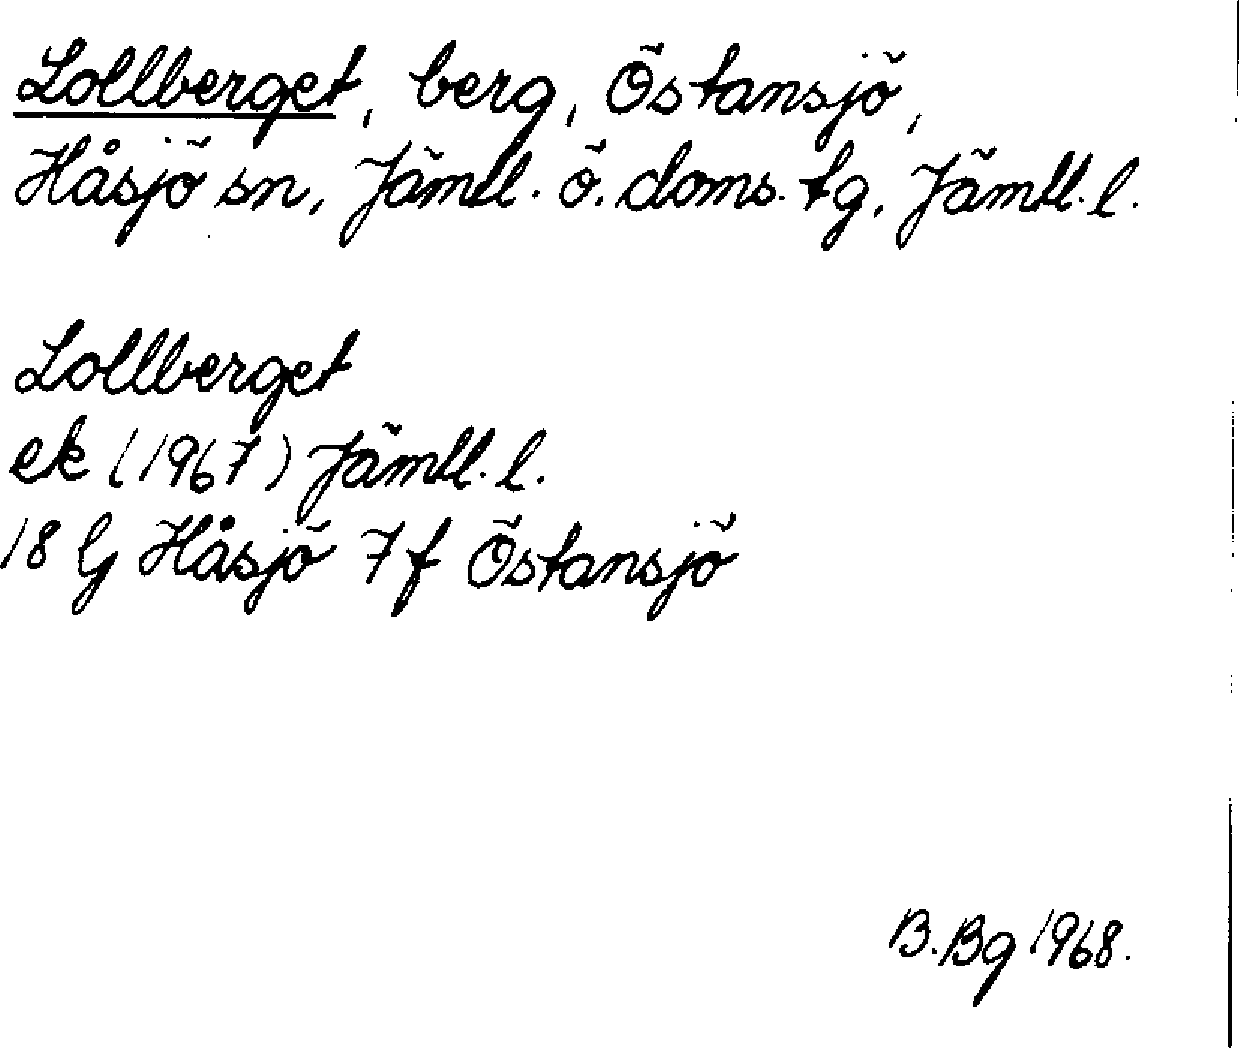 Lollberget, berg, Östansjö,
Håsjö sn, Jämtl. ö. doms. tg, Jämtl. l.
Lollberget
ek (1967) Jämtl. l.
18 G Håsjö 7 f Östansjö
B. Bg 1968.